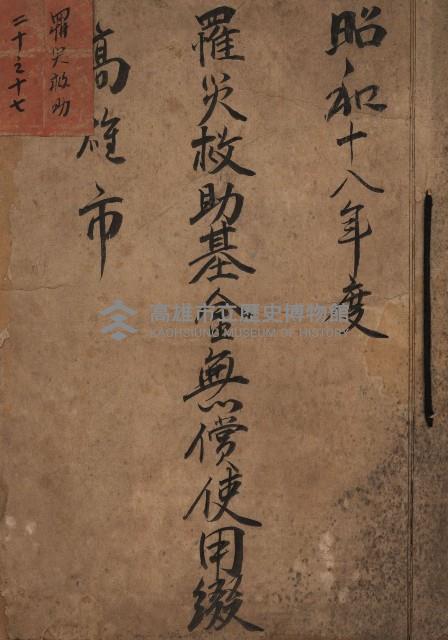 昭和十八年度
罹災救助基金無償使用綴
高雄市
罹災救助
二十之十七
高雄市立歷史博物館
KAOHSIUNG MUSEUM OF HISTORY